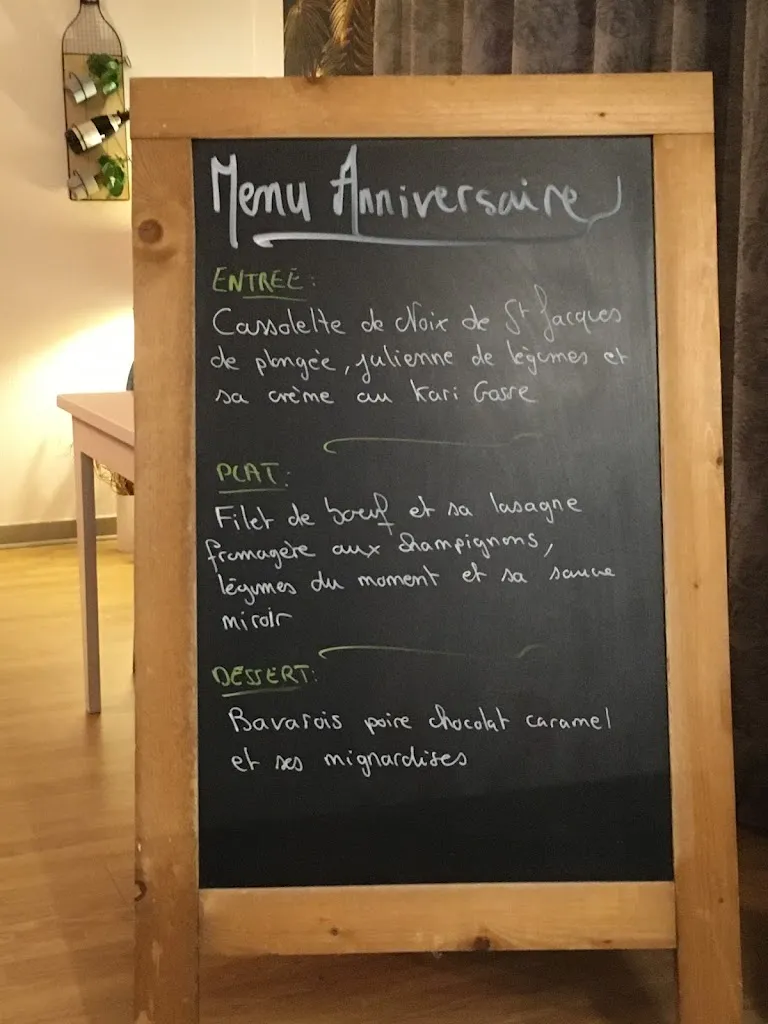 Menu Anniversaire
ENTREE:
Cassolette de Noix de St Jacques
de plongée, julienne de légumes et
sa crème au Kari Gosse
PLAT:
Filet de boeuf et sa lasagne
fromagère aux champignons,
légumes du moment et sa sauce
miroir
DESSERT:
Bavarois poire chocolat caramel
et ses mignardises